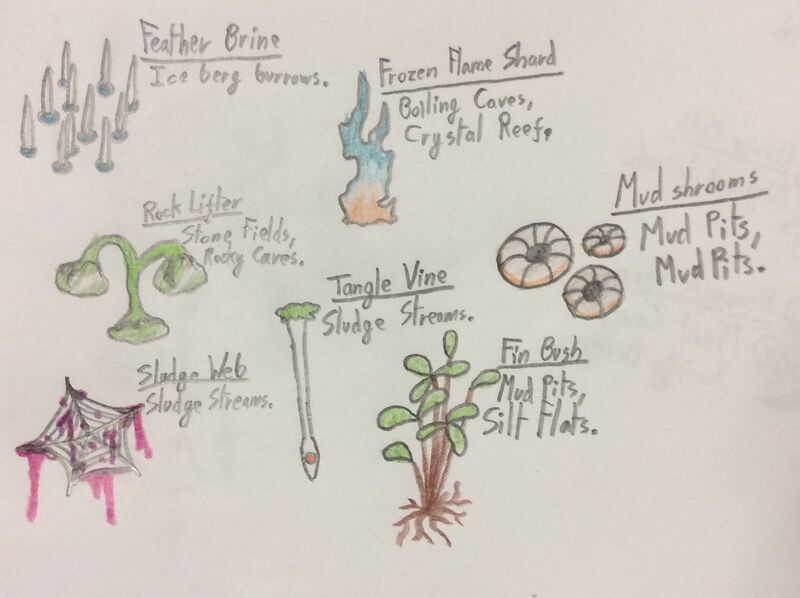 Feather Brine
Ice berg burrows.
Frozen Flame Shard
Boiling Caves,
Crystal Reef.
Rock Lifter
Stone Fields,
Rocky Caves.
Mud shrooms
Mud Pits,
Mud Pits.
Tangle Vine
Sludge Streams.
Sludge Web
Sludge Streams.
Fin Bush
Mud Pits,
Silt Flats.